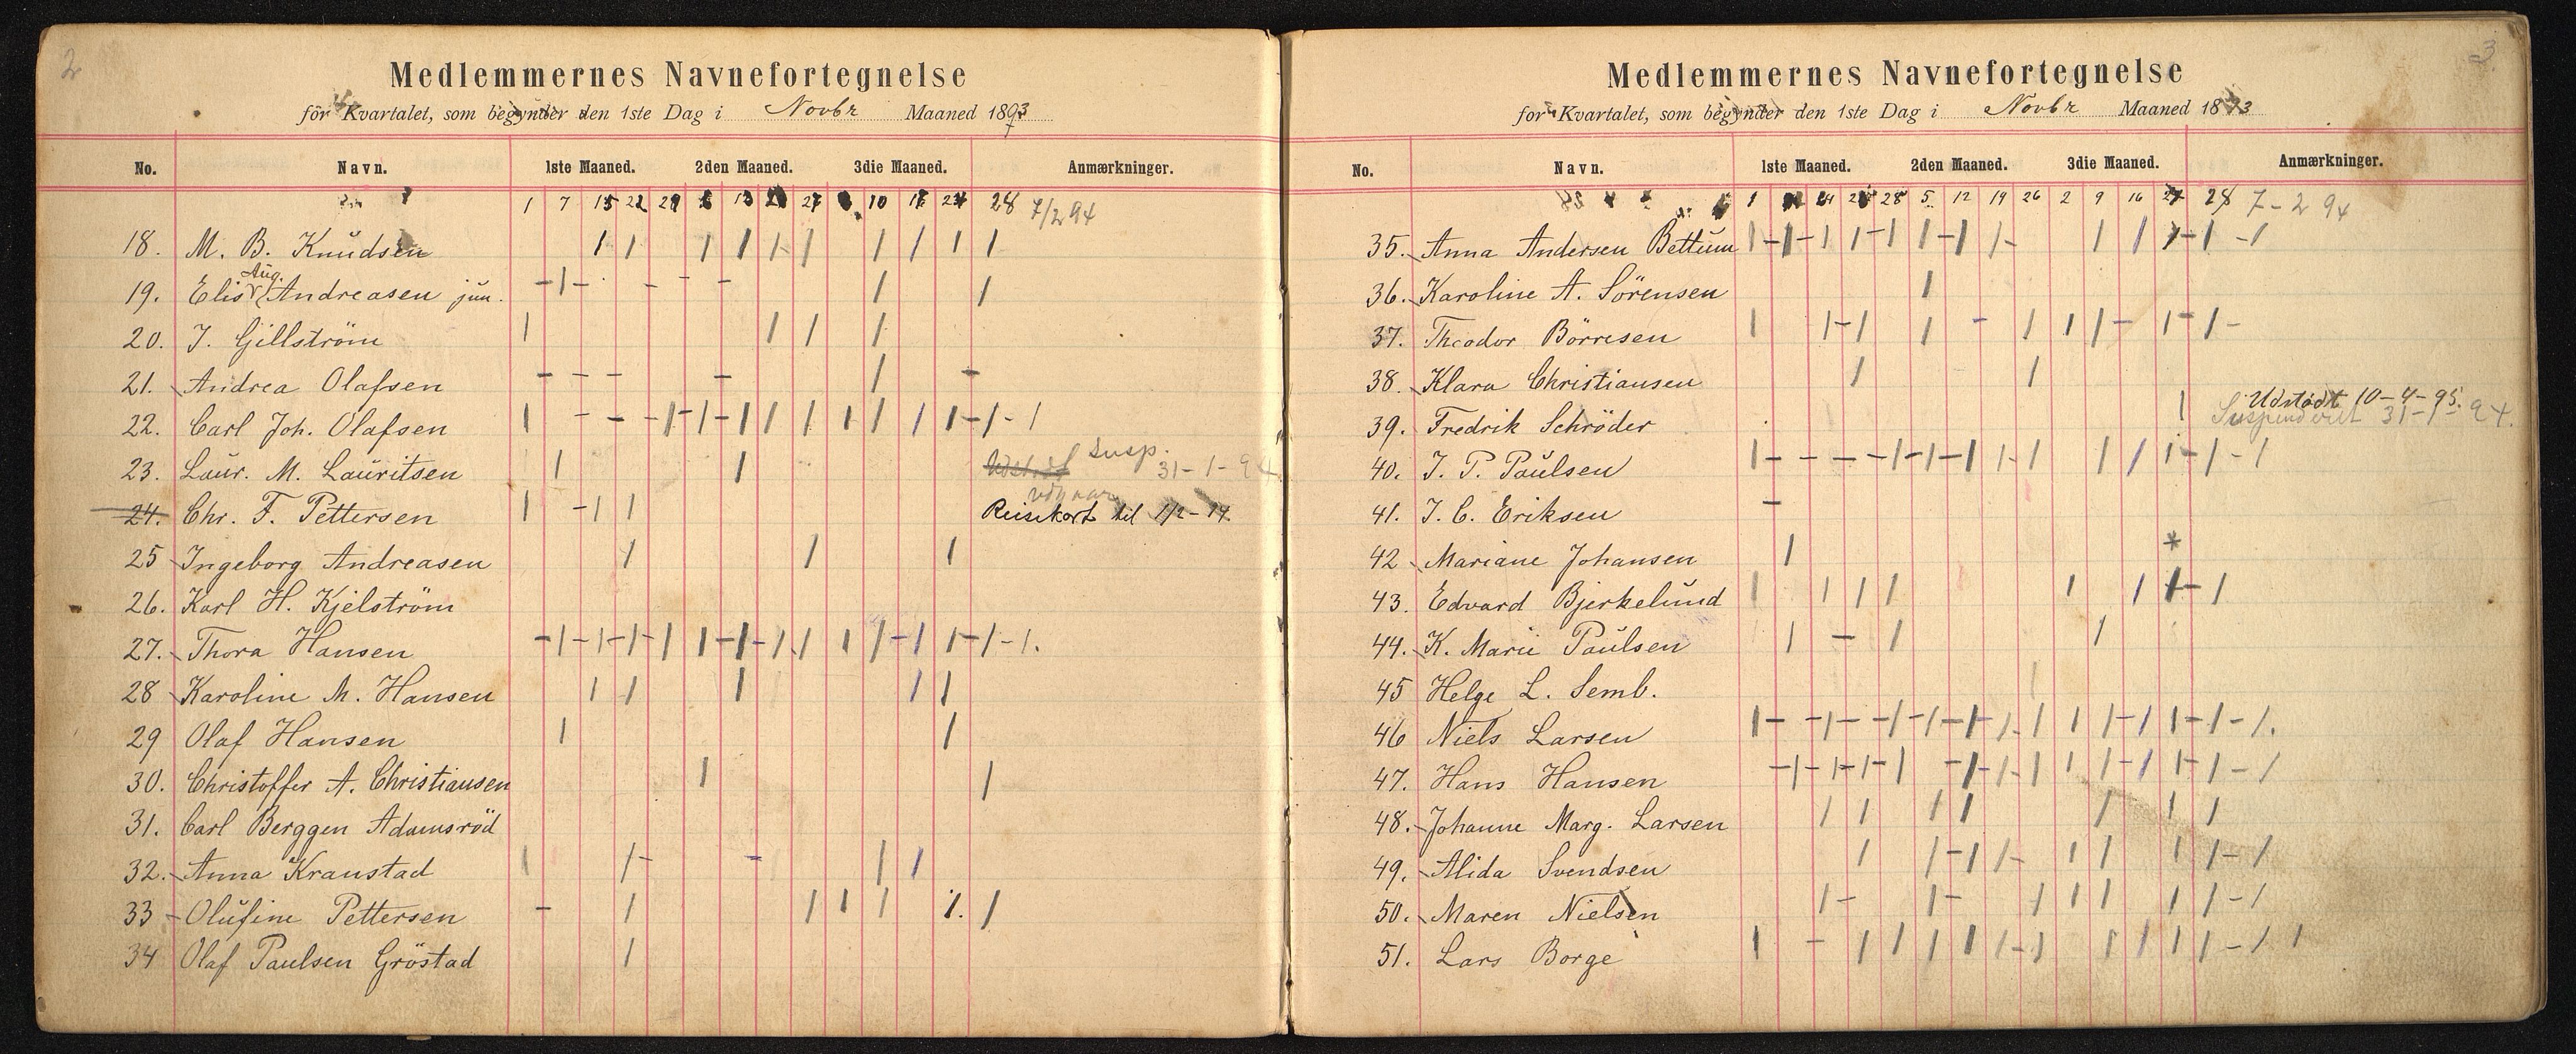 2
Medlemmernes Navnefortegnelse
for Kvartalet, som begynder den 1ste Dag i Novbr Maaned 1893
No. Navn. 1ste Maaned. 2den Maaned. 3die Maaned. Anmærkninger.
1 7 15 22 29 13 27 10 17 24 28 7/2 94
18. M. B. Knudsen
Aug.
19. Elis Andreasen jun.
20. J. Gillström
21. Andrea Olafsen
22. Carl Joh. Olafsen
23. Laur. M. Lauritsen Susp. 31-1-94
24. Chr. F. Pettersen Reisekort til 1/2-94
25 Ingeborg Andreasen
26. Karl H. Kjelström
27. Thora Hansen
28 Karoline M. Hansen
29 Olaf Hansen
30. Christoffer A. Christiansen
31. Carl Berggen Adamsröd
32. Anna Kraustad
33 Olufine Pettersen
34 Olaf Paulsen Gröstad
3
Medlemmernes Navnefortegnelse
for Kvartalet, som begynder den 1ste Dag i Novbr Maaned 1893
No. Navn. 1ste Maaned. 2den Maaned. 3die Maaned. Anmærkninger.
1 28 5 12 19 26 2 9 16 28 7-2 94
35. Anna Andersen Bettum
36. Karoline A. Sörensen
37. Theodor Börresen
38. Klara Christiansen
Udstödt 10-4-95.
39. Fredrik Schröder Suspenderet 31-1-94.
40. J. P. Paulsen
41. J. C. Eriksen
42 Mariane Johansen *
43. Edvard Bjerkelund
44. K. Marie Paulsen
45 Helge L. Semb.
46 Niels Larsen
47. Hans Hansen
48. Johanne Marg. Larsen
49. Alida Svendsen
50. Maren Nielsen
51. Lars Borge